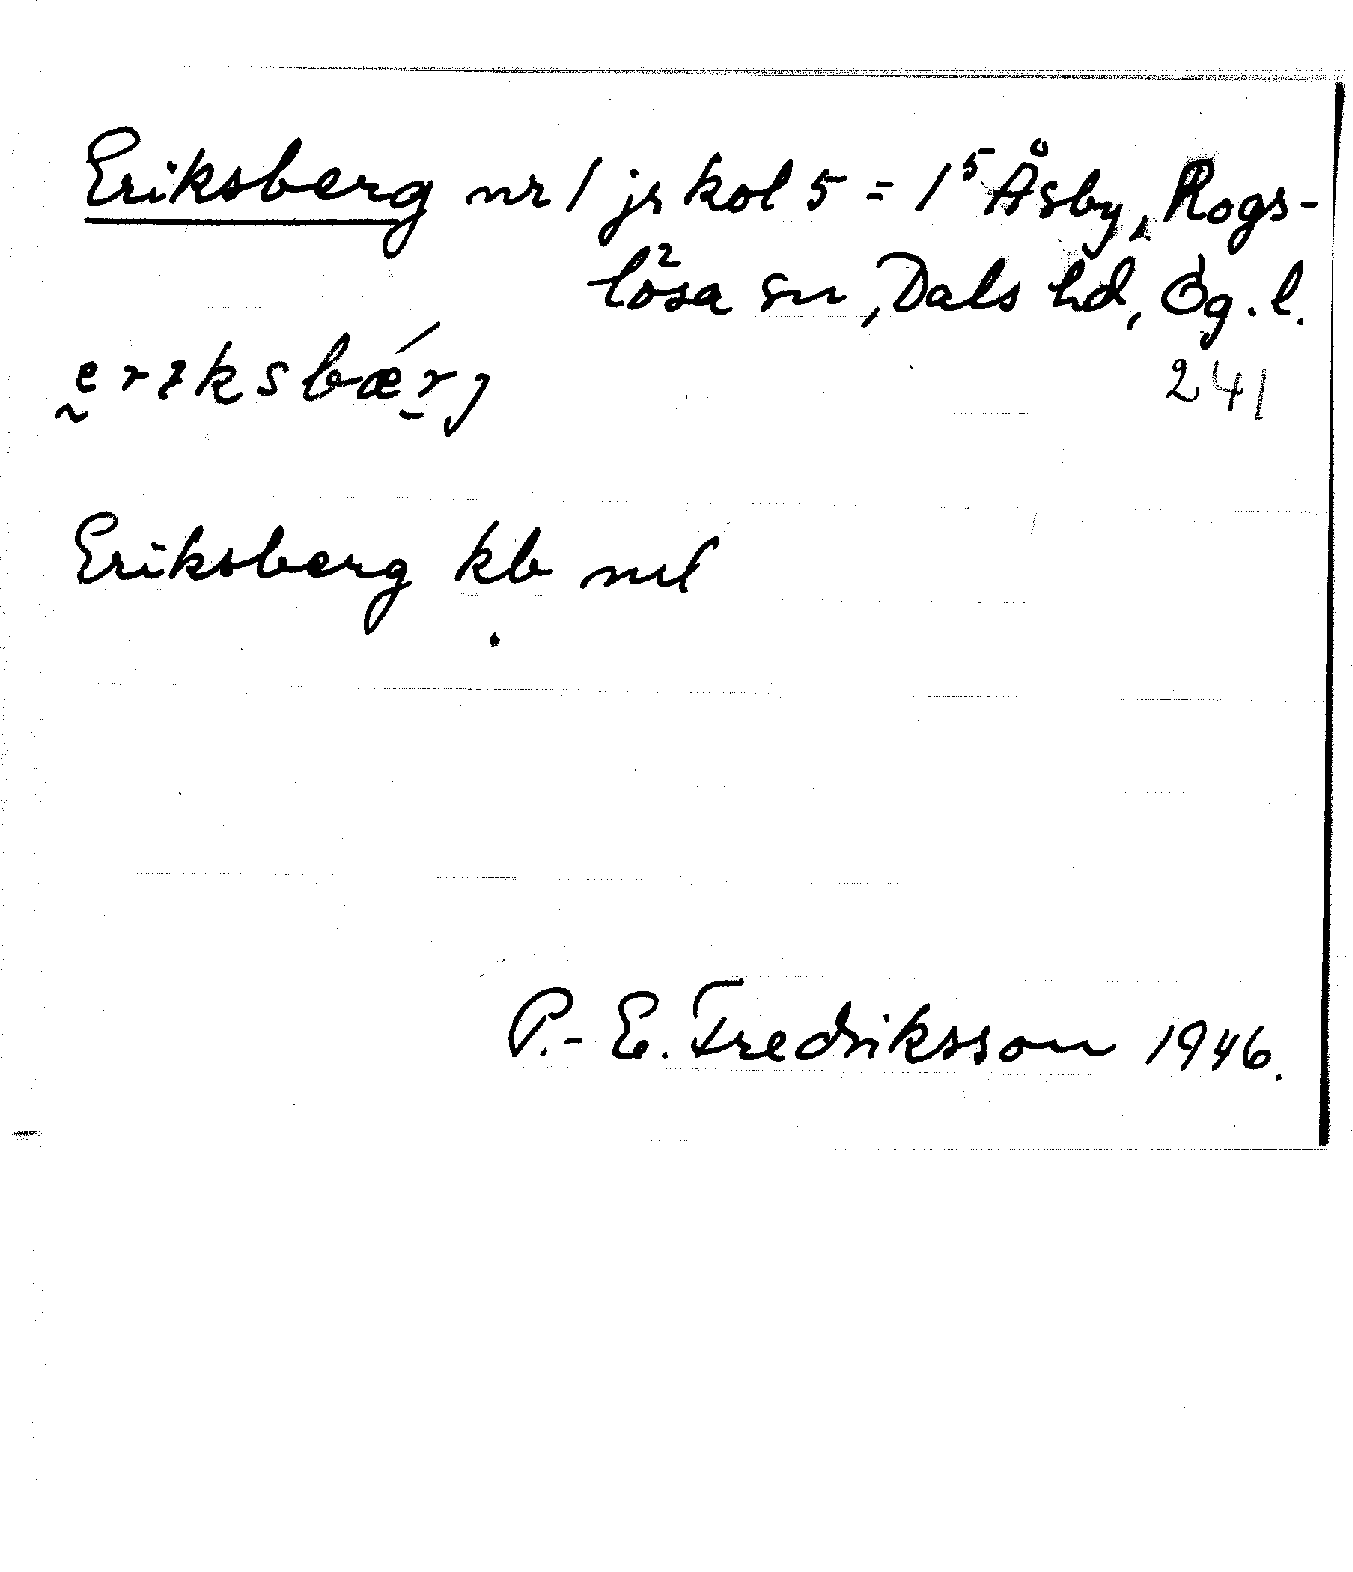 Eriksberg nr 1 jr kol 5 = 1⁵ Åsby, Rogs-
lösa sn, Dals hd, Ög. l.
241
Eriksberg kb
P.-E. Fredriksson 1946.